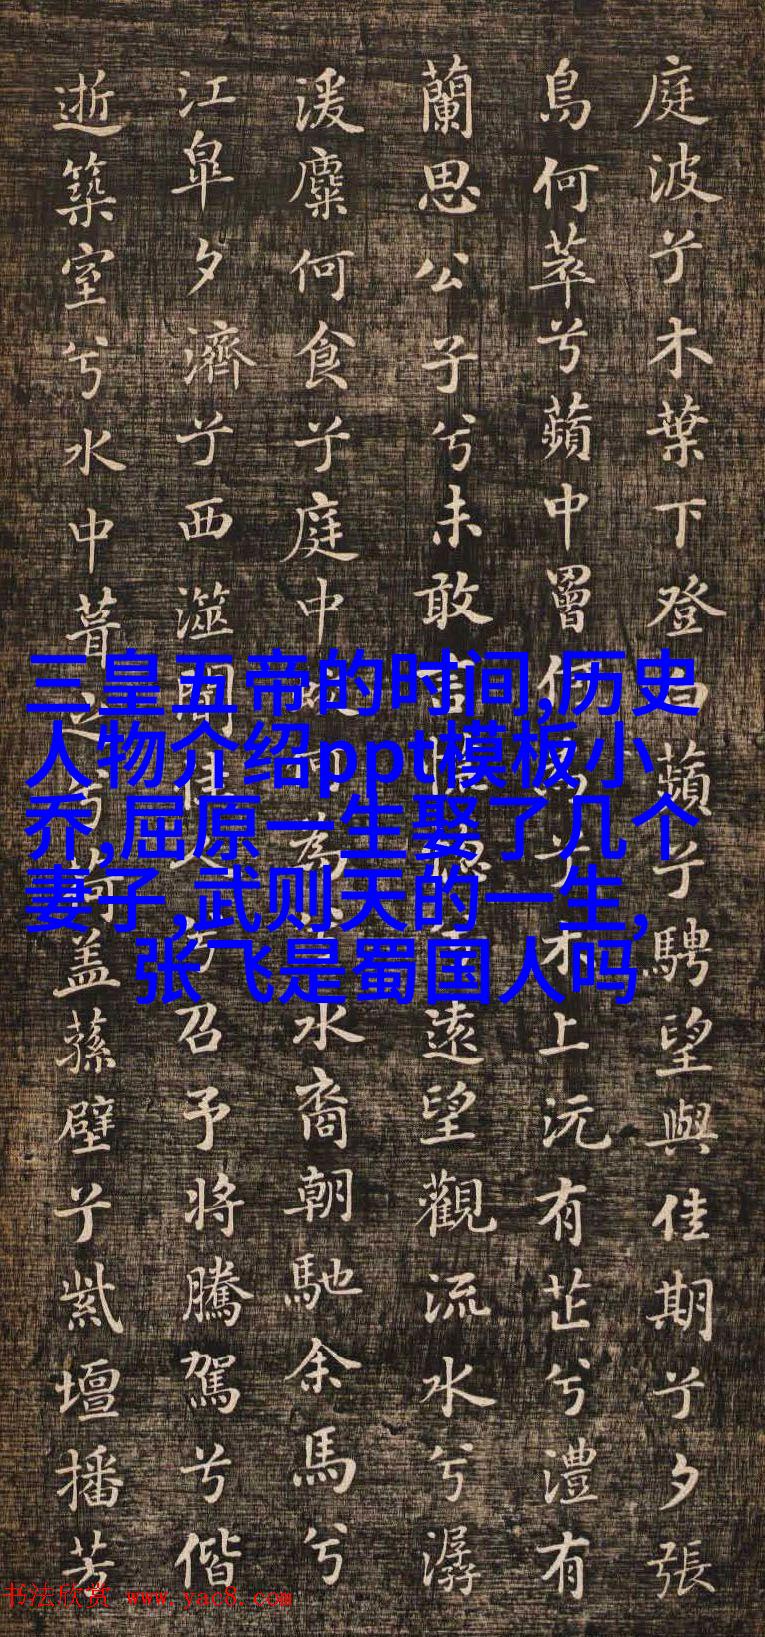 庭波兮木葉下登白蘋兮騁望與佳期兮夕張
鳥何萃兮蘋中罾何兮木上沅有芷兮澧有
蘭思公子兮未敢言遠望觀流水兮潺
湲麋何食兮庭中何為水裔朝馳余馬兮
江皋夕濟兮西澨聞佳兮召予將騰駕兮偕
逝築室兮水中葺之荷蓋蓀壁兮紫壇播芳
三皇五帝的时间,历史
人物介绍ppt模板小
乔,屈原一生娶了几个
妻子,武则天的一生,
张飞是蜀国人吗
书法欣赏 www.yac8.com